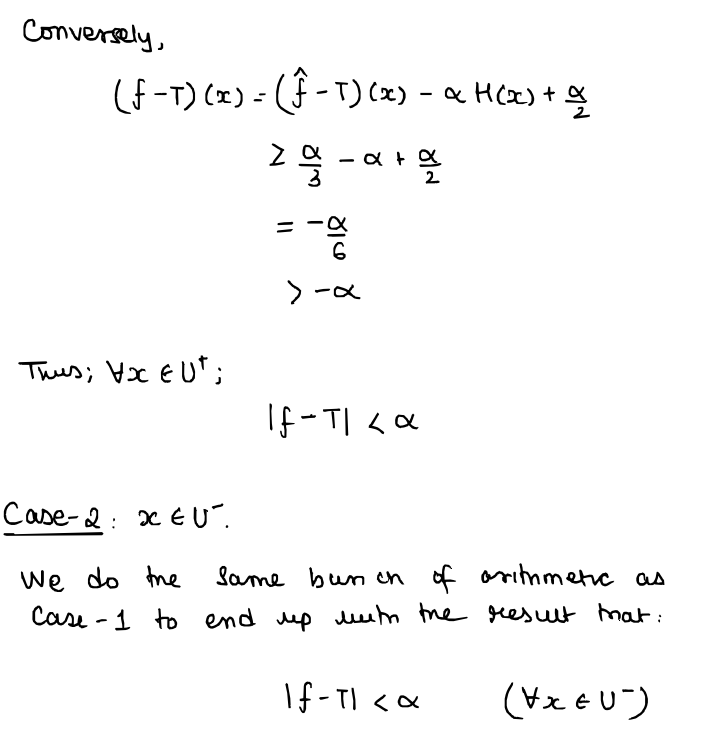 Conversely,
(f-T)(x) = (f̂-T)(x) - α H(x) + α/2
≥ α/3 - α + α/2
= -α/6
> -α
Thus; ∀x ∈ U⁺;
|f-T| < α
Case-2: x ∈ U⁻.
We do the same bunch of arithmetic as
Case-1 to end up with the result that:
|f-T| < α (∀x ∈ U⁻)